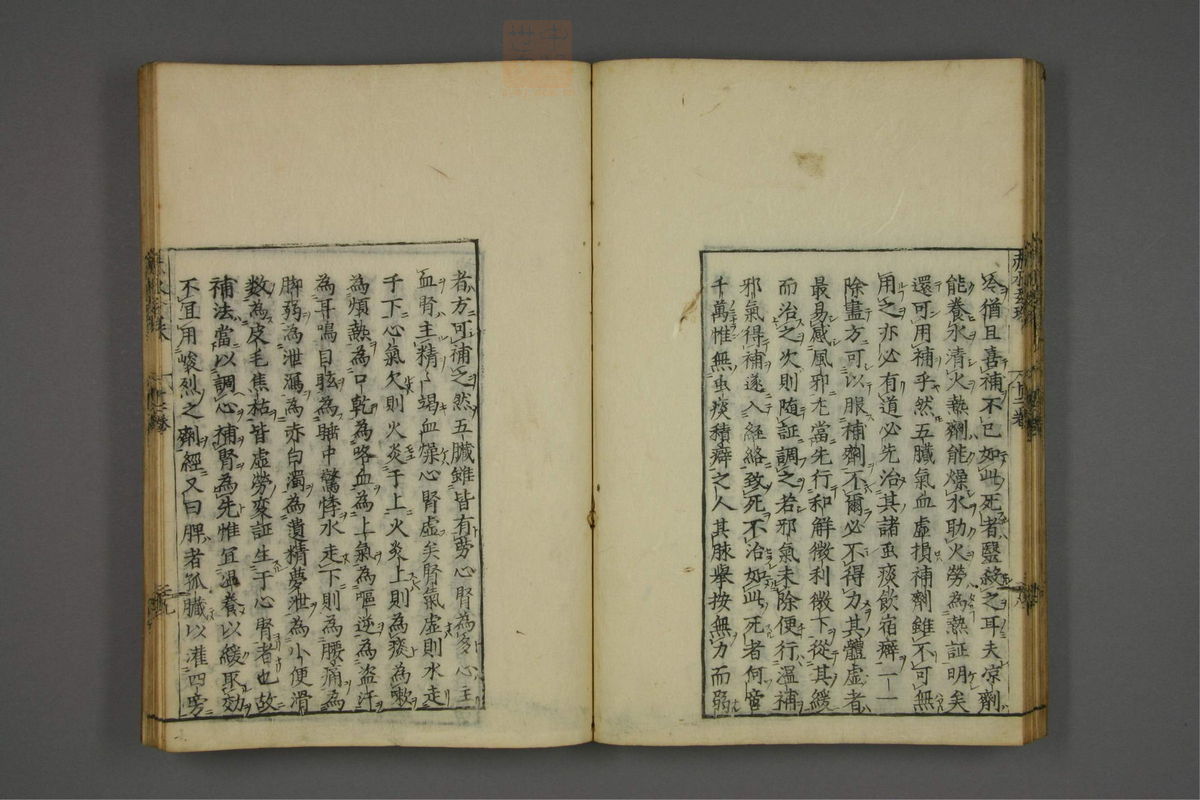 冷猶且喜補不已如此死者醫終之耳夫凉劑
能養水清火熱劑能燥水助火勞為熱証明矣
還可用補乎然五臟氣血虛損補劑雖不可無
用之亦必有道必先治其諸虫痰飲宿癖一一
除盡方可以服補劑不爾必不得力其體虛者
最易感風邪尤當先行和解微利微下從其緩
而治之次則随証調之若邪氣未除便行溫補
邪氣得補遂入経絡致死不治如此死者何啻
千萬惟無虫痰積癖之人其脉舉按無力而弱
者方可補之然五臟雖皆有勞心腎為多心主
血腎主精〻竭血燥心腎虛矣腎氣虛則水走
于下心氣欠則火炎于上火炎上則為痰為嗽
為煩熱為口乾為咯血為上氣為嘔逆為盗汗
為耳鳴目眩為睡中驚悸水走下則為腰痛為
脚弱為泄瀉為赤白濁為遺精夢泄為小便滑
数為皮毛焦枯皆虛勞衆証生于心腎者也故
補法當以調心補腎為先惟宜溫養以緩取効
不宜用峻烈之劑經又曰脾者孤臟以灌四旁